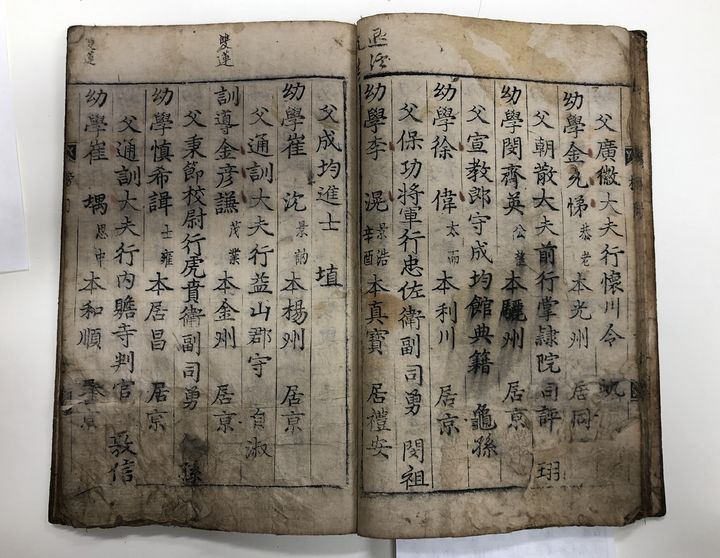 父廣徵大夫行懷川令 凱
幼學金允悌 恭老 本光州 居同
父朝散大夫前行掌隷院司評 珝
幼學閔齊英 公 本驪州 居京
父宣教郎守成均館典籍 龜孫
幼學徐偉 太而 本利川 居京
父保功將軍行忠佐衛副司勇 閔祖
幼學李滉 景浩 辛酉 本真寶 居禮安
父成均進士 埴
幼學崔沈 景 本楊州 居京
雙蓮
父通訓大夫行益山郡守 自淑
訓導金彦謙 茂業 本金州 居京
父秉節校尉行虎賁衛副司勇 孫
幼學慎希諿 士雍 本居昌 居京
父通訓大夫行內贍寺判官 敬信
雙蓮
幼學崔堣 思中 本和順 京